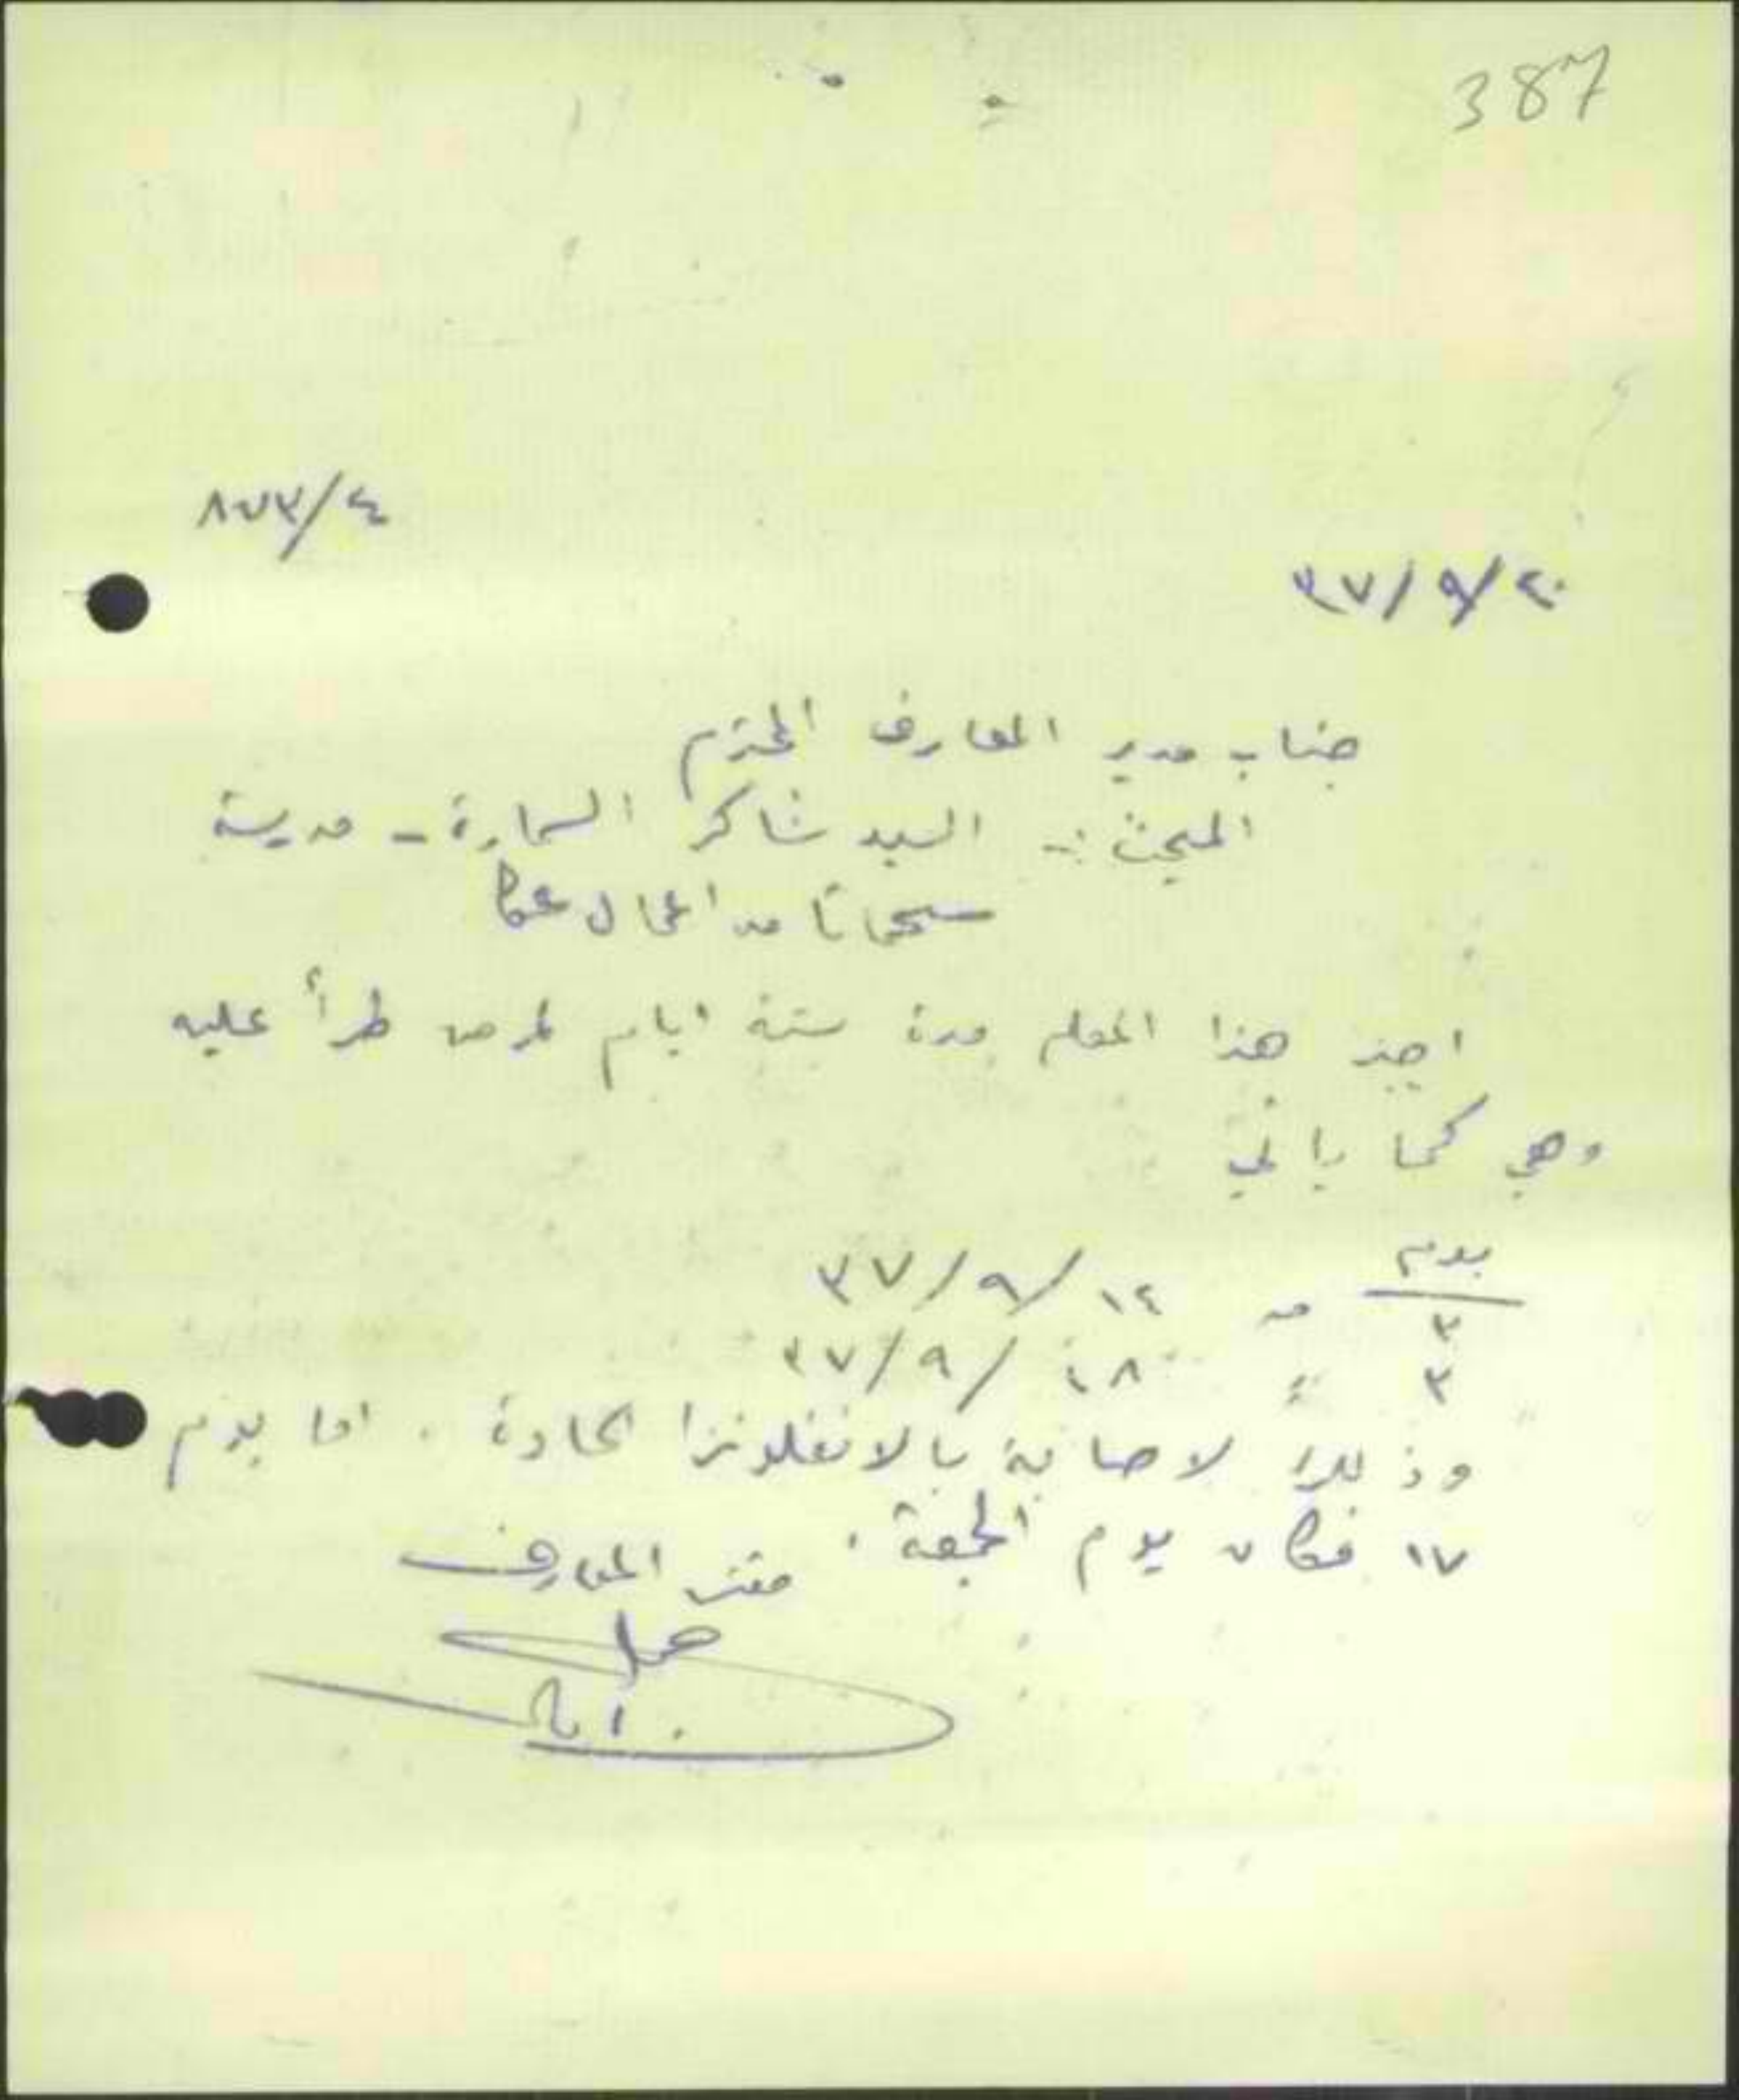 387
٨٧٣/٤
٣٧/٩/٢٠
جناب مدير المعارف المحترم
المبحث :- السيد شاكر السمارة - مدرسة
سحماتا من اعمال عكا
اجيز هذا المعلم مدة ستة ايام لمرض طرأ عليه
وهي كما يأتي
يوم
٣ من ١٤/٩/٣٧
٣ " ١٨/٩/٣٧
وذلك لاصابة بالانفلونزا الحادة . اما يوم
١٧ فكان يوم الجمعة .
مفتش المعارف